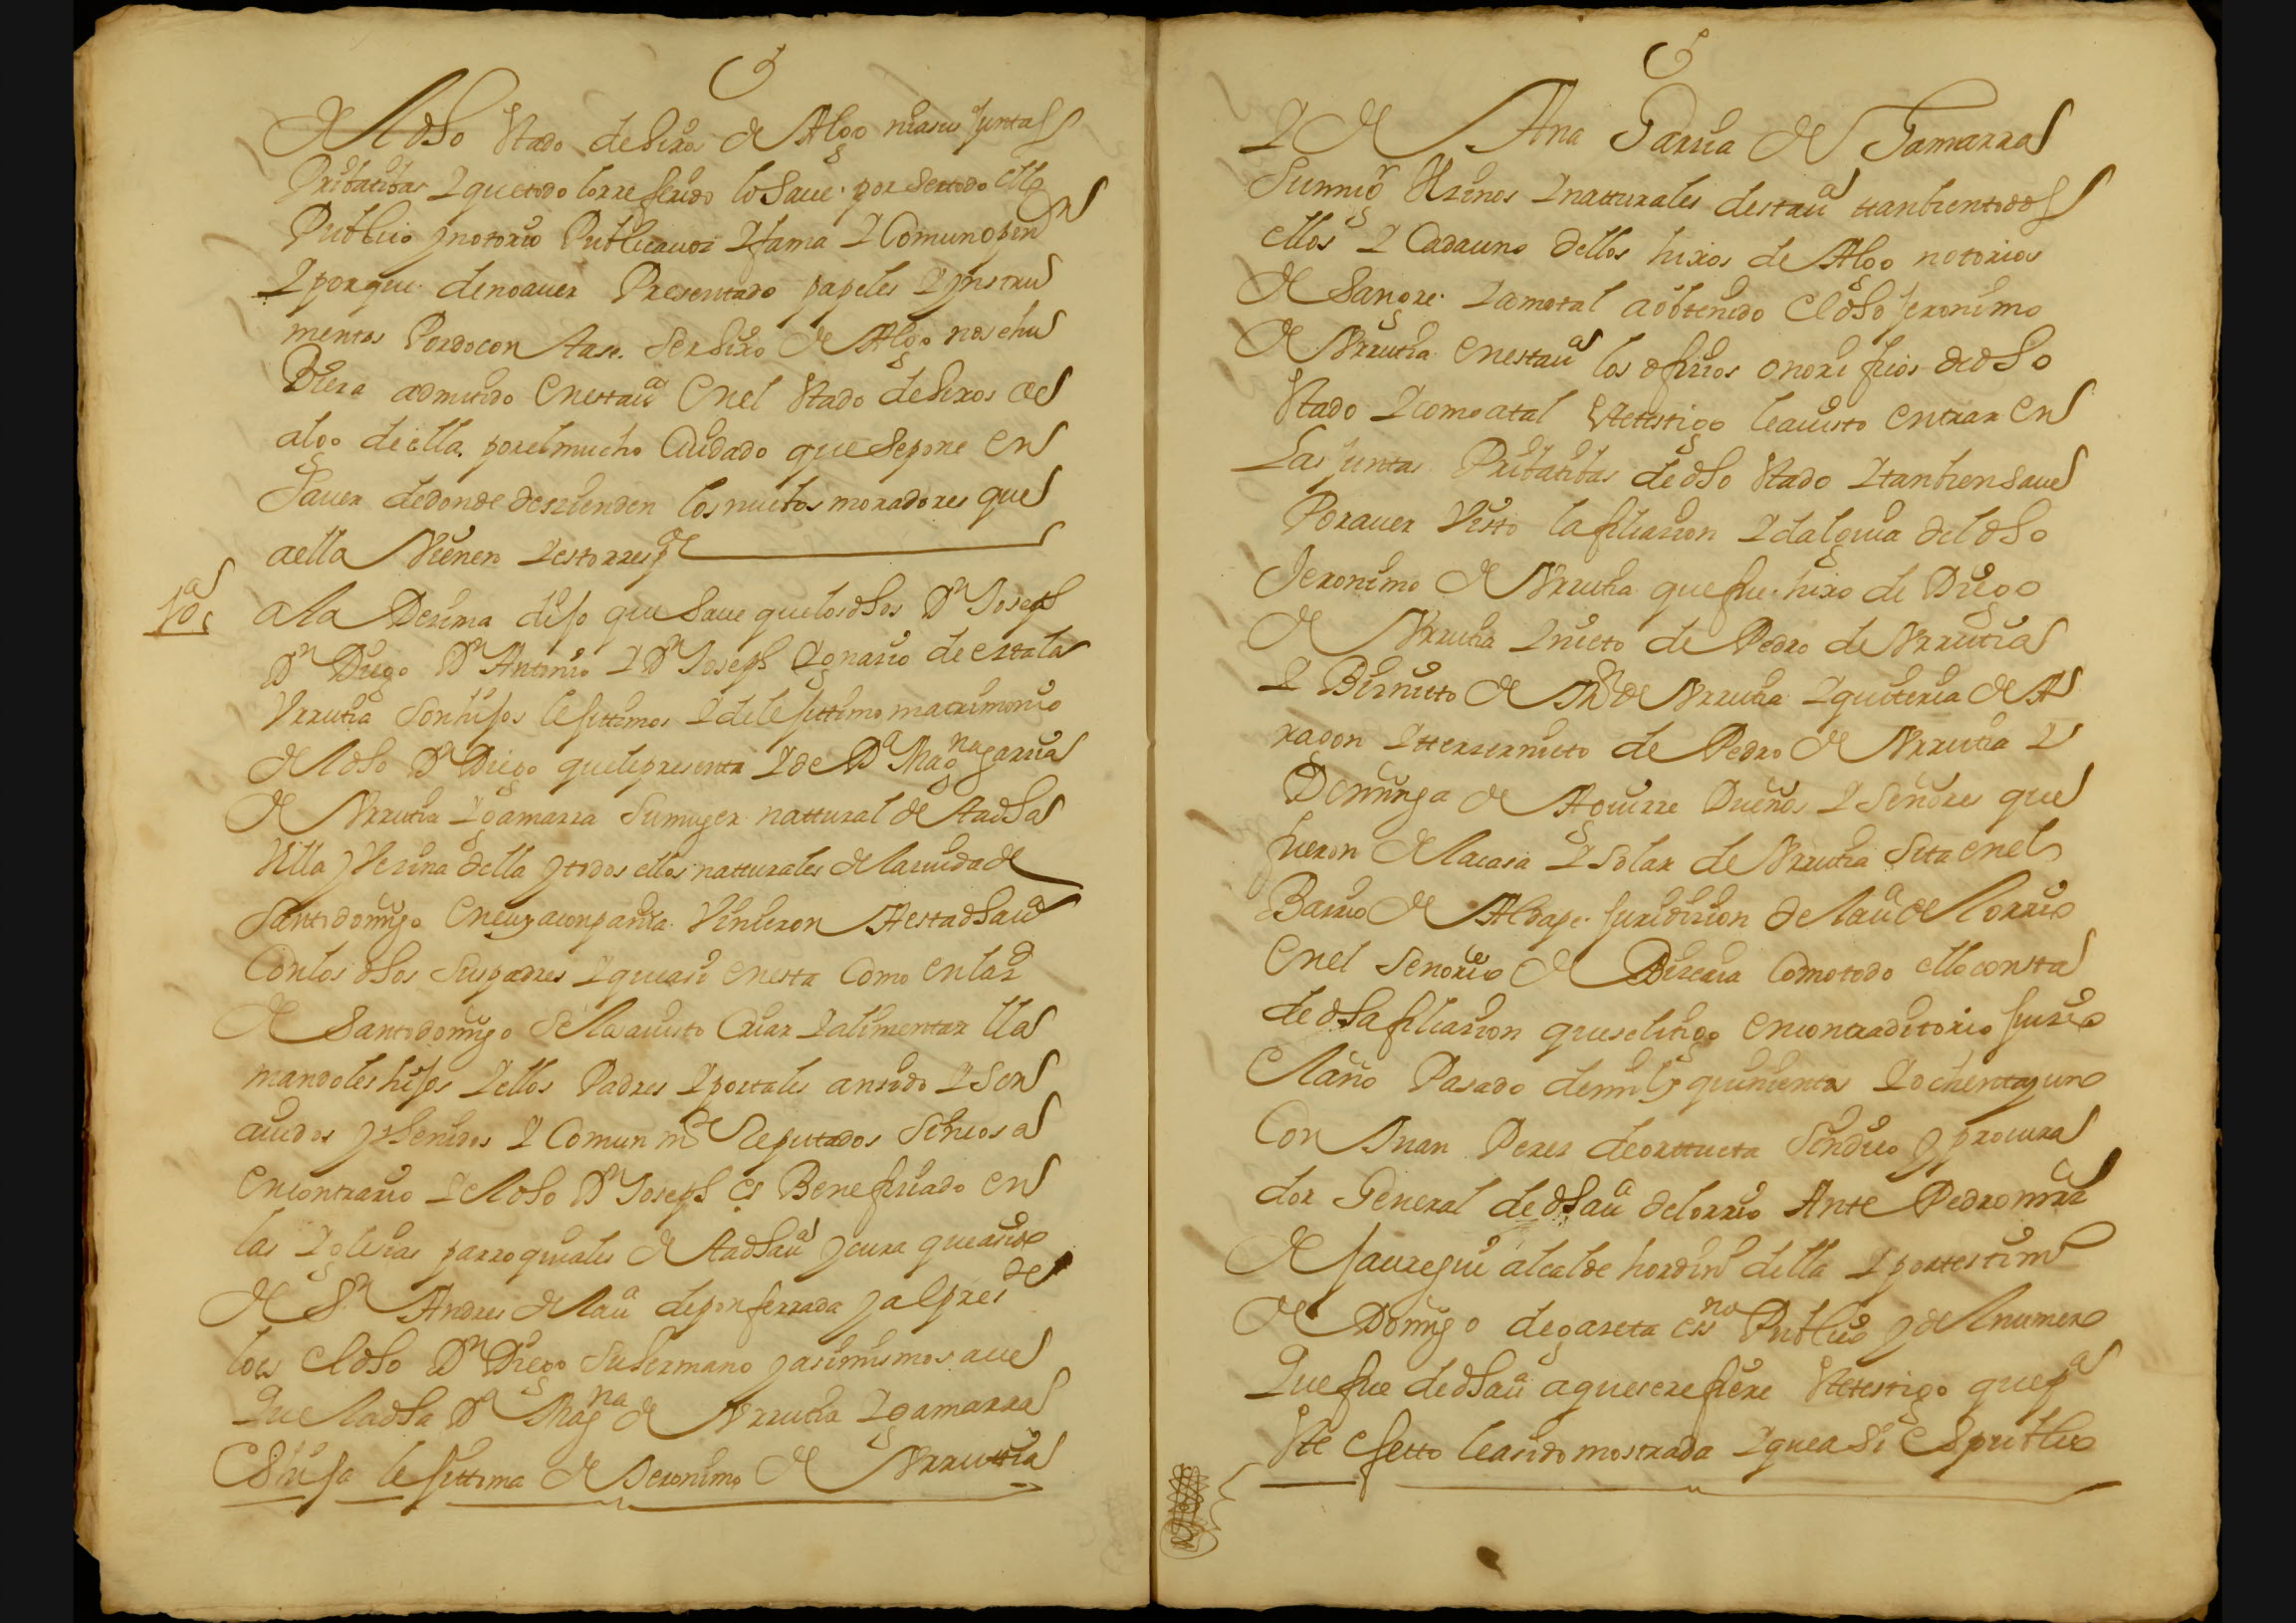 del dho stado de hixos de Algo ni a sus juntas
Pribatibas Y que todo lo rreferido lo saue por ser todo ello
Publico y notorio Publica uoz Y fama Y Comun opin
Y porque de no auer Presentado papeles Y ynstru
mentos Por do constase ser hixo de Algo no se hu
Biera admitido en esta uᵃ en el stado de hixos de
algo de ella por el mucho Cuidado que se pone en
Sauer de donde deszienden los nuebos moradores que
a ella Vienen Y esto rrespᵈᵉ
10ᵃ
a la Dezima dijo que saue que los dhos Dⁿ Joseph
Dⁿ Diego Dⁿ Antonio Y Dⁿ Joseph Ygnazio de
Vrrutia son hijos lejittimos Y de lejittimo matrimonio
del dho Dⁿ Diego que le presenta Y de Dᵃ Magⁿᵃ garzia
de Vrrutia Y gamarra su muger nattural de sta dha
Villa y Vezina della y todos ellos natturales de la ziudad de
Santo domigo en cuya conpañia Vinieron A esta dha uᵃ
Con los dhos sus padres Y que asi en esta Como en la
de Santo domigo se los a uisto Criar Y alimentar lla
mandoles hijos Y ellos Padres Y por tales an sido Y son
auidos y thenidos Y Comun mᵗᵉ Reputados sin cosa
en contrario Y el dho Dⁿ Joseph es Benefiziado en
las Yglesias parroquiales de sta dha uᵃ y cura que a sido
de Sⁿ Andres de la uᵃ de ponferrada y al presᵗᵉ
lo es el dho Dⁿ Diego su hermano y asi mismo saue
Que la dha Dᵃ Magⁿᵃ de Vrrutia Y gamarra
Es hija lejittima de Jeronimo de Vrruttia
Y de Ana Garzia de Gamarra
Su muǵ Vezinos Y natturales desta uᵃ tanbien todos
ellos Y Cada uno dellos hixos de Algo notorios
de Sangre Y como tal a obtenido el dho jeronimo
de Vrrutia en esta uᵃ los ofizios onorificos de dho
stado Y como a tal ste testigo le a uisto entrar en
Las juntas Pribatibas de dho stado Y tanbien saue
Por auer Visto la filiazion Ydalguia del dho
Jeronimo de Vrrutia que fue hixo de Diego
de Vrrutia Y nieto de Pedro de Vrrutia
Y Bisnieto de de Vrrutia Y quiteria de A
ragon Y terzer nieto de Pedro de Vrrutia Y
Dominga de Aguirre Dueños Y señores que
fueron de la casa Y solar de Vrrutia sita en el
Barrio de Aldape juridizion de la uᵃ de lorrio
en el señorio de Bizcaia Como todo ello consta
de dha filiazion que se litigo en contraditorio juizio
el año Pasado de mill y quinientos Y ochenta y uno
Con Juan Perez de orttueta Sindico y procura
dor General de dha uᵃ de lorrio Ante Pedro mrz
de jauregui alcalde hordinᵒ della Y por testimᵒ
de Domigo de gazeta essⁿᵒ Publico y del numero
Que fue de dha uᵃ a que se refiere ste testigo que pᵃ
ste efetto le a sido mostrada Y que asi es publico